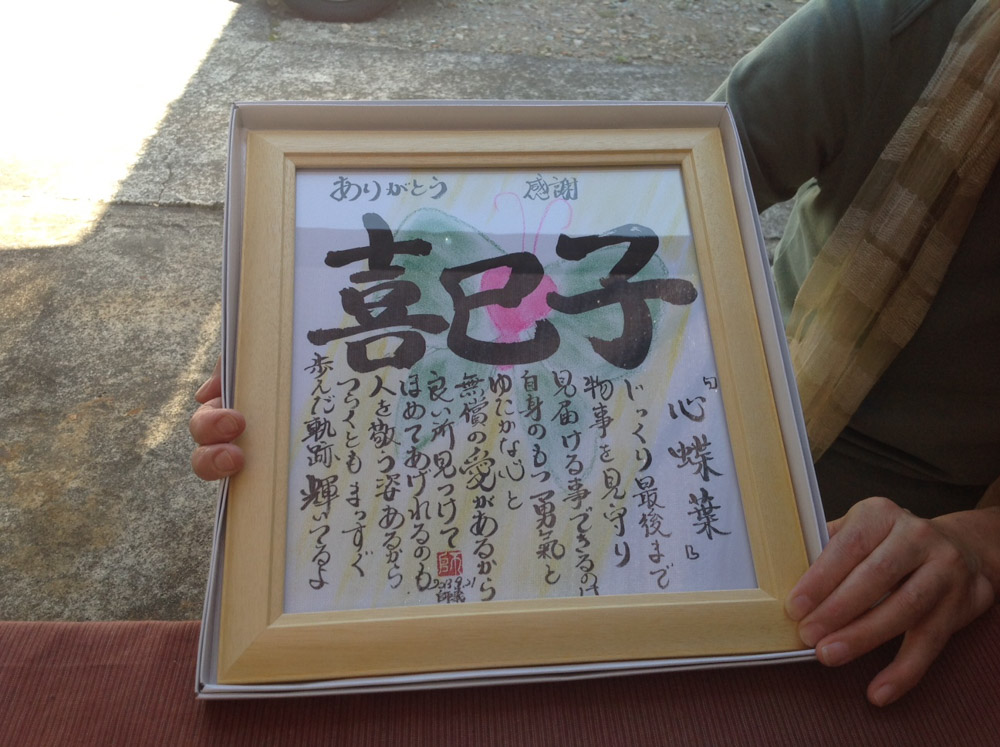 ありがとう 感謝
喜巳子
『心蝶葉』
じっくり最後まで
物事を見守り
見届ける事できるのは
自身のもつ勇氣と
ゆたかな心と
無償の愛があるから
良い所見つけて
ほめてあげれるのも
人を敬う姿あるから
つらくとも まっすぐ
歩んだ軌跡 輝いてるよ
師
2013.9.21